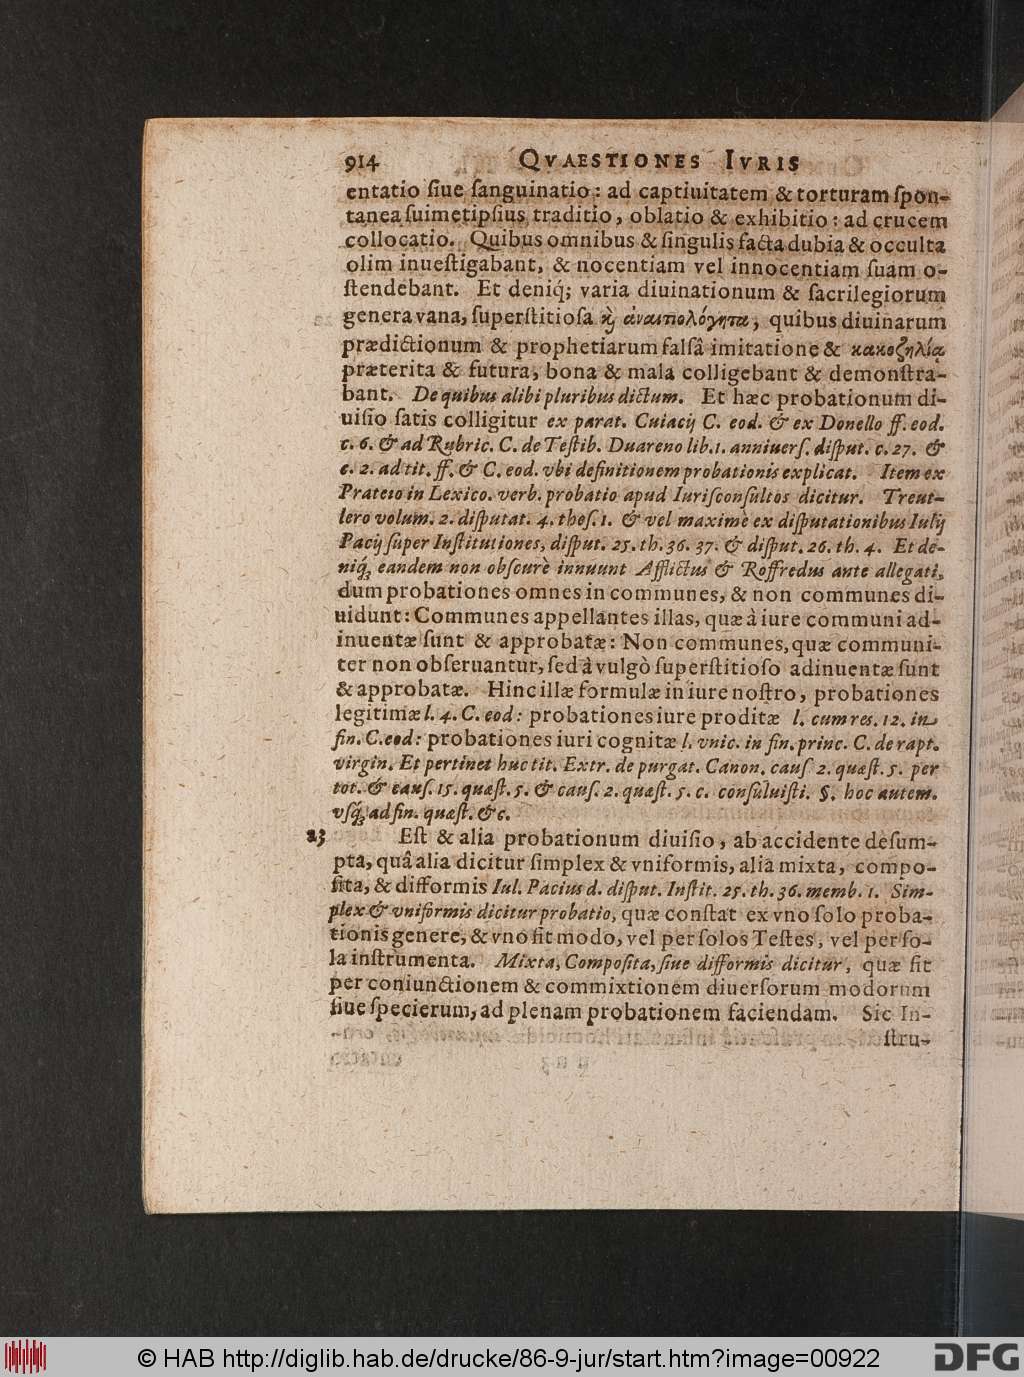 914 QVAESTIONES IVRIS
entatio ſiue ſanguinatio: ad captiuitatem & torturam ſpon-
tanea ſuimetipſius traditio, oblatio & exhibitio: ad crucem
collocatio. Quibus omnibus & ſingulis facta dubia & occulta
olim inueſtigabant, & nocentiam vel innocentiam ſuam o-
ſtendebant. Et deniq́; varia diuinationum & ſacrilegiorum
genera vana, ſuperſtitioſa ϗ̀ ἀναιτιολόγητα, quibus diuinarum
prædictionum & prophetiarum falſâ imitatione & κακοζηλίᾳ
præterita & futura, bona & mala colligebant & demonſtra-
bant. De quibus alibi pluribus dictum. Et hæc probationum di-
uiſio ſatis colligitur ex parat. Cuiacij C. eod. & ex Donello ff. eod.
c. 6. & ad Rubric. C. de Teſtib. Duareno lib. 1. anniuerſ. diſput. c. 27. &
c. 2. ad tit. ff. & C. eod. vbi definitionem probationis explicat. Item ex
Prateio in Lexico. verb. probatio apud Iuriſconſultos dicitur. Treut-
lero volum. 2. diſputat. 4. theſ. 1. & vel maximè ex diſputationibus Iulij
Pacij ſuper Inſtitutiones, diſput. 25. th. 36. 37. & diſput. 26. th. 4. Et de-
niq́, eandem non obſcurè innuunt Afflictus & Roffredus ante allegati,
dum probationes omnes in communes, & non communes di-
uidunt: Communes appellantes illas, quæ à iure communi ad-
inuentæ ſunt & approbatæ: Non communes, quæ communi-
ter non obſeruantur, ſed à vulgò ſuperſtitioſo adinuentæ ſunt
& approbatæ. Hinc illæ formulæ in iure noſtro, probationes
legitimæ l. 4. C. eod: probationes iure proditæ l. cum res. 12. in
fin. C. eod: probationes iuri cognitæ l. vnic. in fin. princ. C. de rapt.
virgin. Et pertinet huc tit. Extr. de purgat. Canon. cauſ. 2. quæſt. 5. per
tot. & cauſ. 15. quæſt. 5. & cauſ. 2. quæſt. 5. c. conſuluiſti. §. hoc autem.
vſq́, ad fin. quæſt. &c.
23 Eſt & alia probationum diuiſio, ab accidente deſum-
pta, quâ alia dicitur ſimplex & vniformis, alia mixta, compo-
ſita, & difformis Iul. Pacius d. diſput. Inſtit. 25. th. 36. memb. 1. Sim-
plex & vniformis dicitur probatio, quæ conſtat ex vno ſolo proba-
tionis genere, & vno fit modo, vel per ſolos Teſtes, vel per ſo-
la inſtrumenta. Mixta, Compoſita, ſiue difformis dicitur, quæ fit
per coniunctionem & commixtionem diuerſorum modorum
ſiue ſpecierum, ad plenam probationem faciendam. Sic In-
ſtru-
© HAB http://diglib.hab.de/drucke/86-9-jur/start.htm?image=00922
DFG